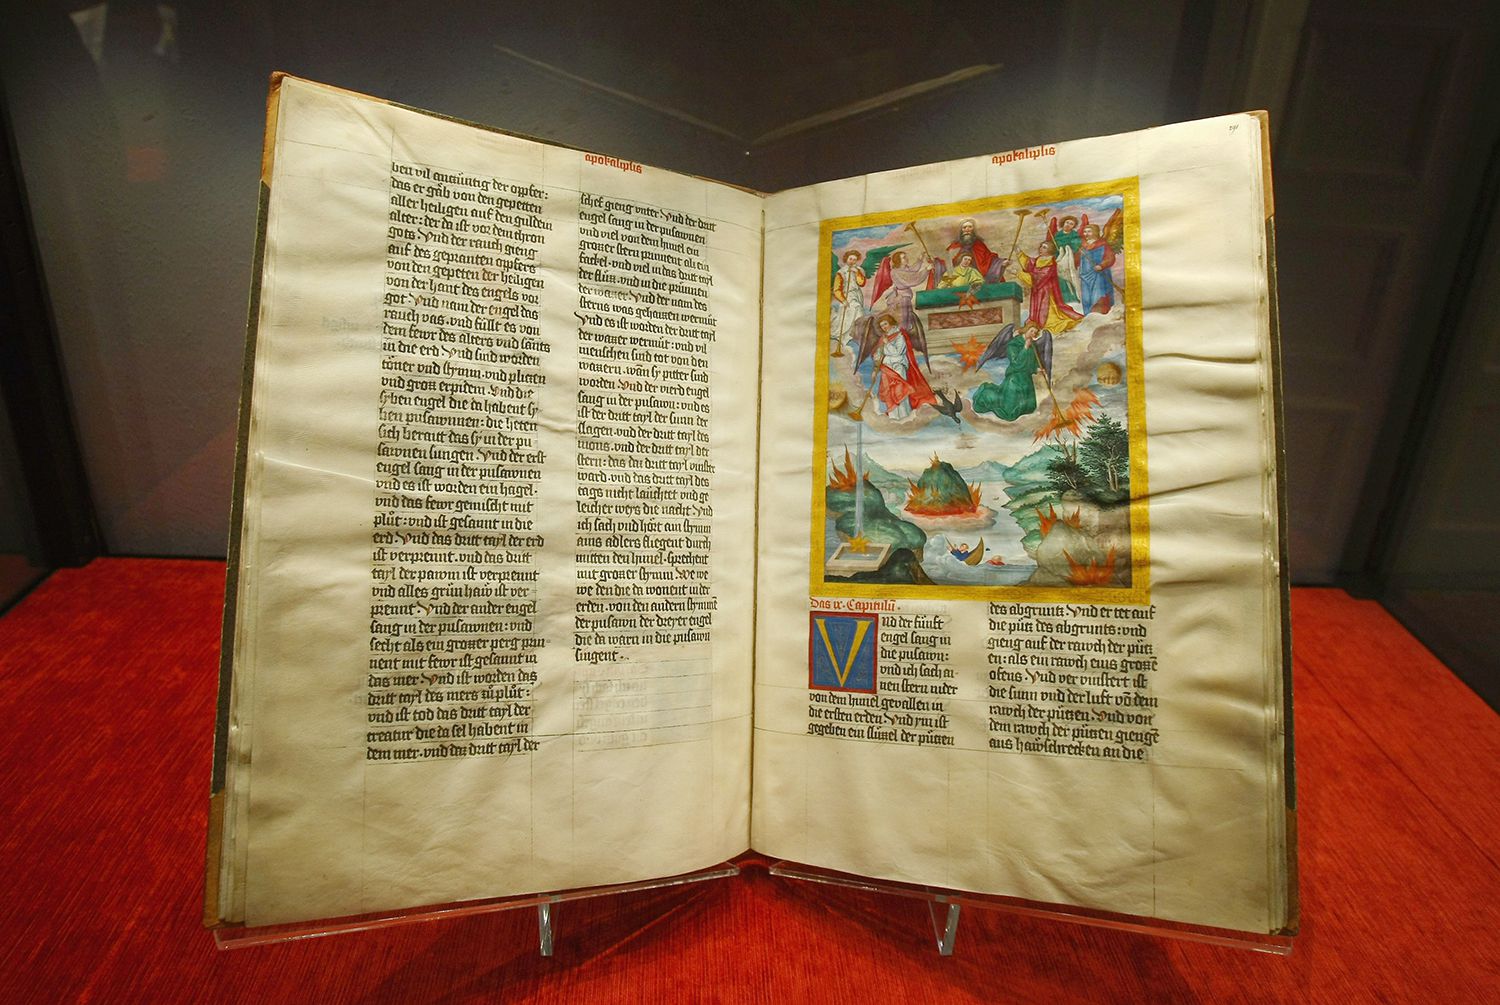 apokaliplis
ben vil antzüntig der opfer:
das er gäb von den gepetten
aller heiligen auf den guldem
alter: der da ist vor dem thron
gots. Vnd der rauch gieng
auf des gepranten opfers
von den gepeten der heiligen
von der hant des engels vor
got. Vnd nam der engel das
rauch vas. vnd füllt es von
dem fewr des alters vnd sants
in die erd. Vnd sind worden
töner vnd stymm. vnd plitzen
vnd gross erpidem. Vnd die
syben engel die da habent sy
ben pusawnnen: die heten
sich beraut das sy in der pu
sawnen sungen. Vnd der erst
engel sang in der pusawnen
vnd es ist worden ein hagel.
vnd das fewr gemischt mit
plůt: vnd ist gesannt in die
erd. Vnd das dritt tayl der erd
ist verprennt. vnd das dritt
tayl der pawm ist verprennt
vnd alles grün haw ist ver
prennt. Vnd der ander engel
sang in der pusawnen: vnd
secht als ein grosser perg prin
nent mit fewr ist gesannt in
das mer. Vnd ist worden das
dritt tayl des mers zů plůt:
vnd ist tod das dritt tayl der
creatur die da sel habent in
dem mer. vnd daz dritt tayl der
schef gieng vnter. Vnd der drit
engel sang in der pusawnen
und viel von dem himel ein
grosser stern prinnent als ein
fackel. vnd viel in das dritt tayl
der flüzz. vnd in die prünnen
der wazzer. Vnd der nam des
sterns was gehaissen wermüt
Vnd es ist worden der dritt tayl
der wazzer wermüt: vnd vil
menschen sind tot von den
wazzern. wan sy pitter sind
worden. Vnd der vierd engel
sang in der pusawn: vnd es
ist der dritt tayl der sunn der
slagen. vnd der dritt tayl des
mons. vnd der dritt tayl der
stern: das da dritt tayl vinster
ward. vnd das dritt tayl des
tags nicht lauchtet vnd ge
leicher weys die nacht. Vnd
ich sach vnd hört ain stymm
ains adlers fliegent durch
mitten den himel. sprechent
mit grosser stymm. We we
we den die da wonent in der
erden. von den andern stymme
der pusawn der dreyer engel
die da warn in die pusawn
singent.
apokaliplis
291
Das ix. Capitulū.
Vnd der fünft
engel sang in
die pusawn:
vnd ich sach ai-
nen stern nider
von dem himel gevallen in
die ersten erden. Vnd ym ist
gegeben ein slüzzel der pützen
des abgruntz. Vnd er tet auf
die pütz des abgrunts: vnd
gieng auf der rawch der pütz
en: als ein rawch eins grossē
ofens. Vnd ver vinstert ist
die sunn vnd der luft vō dem
rawch der pützen. Vnd von
dem rawch der pützen giengē
aus hawschrecken an die